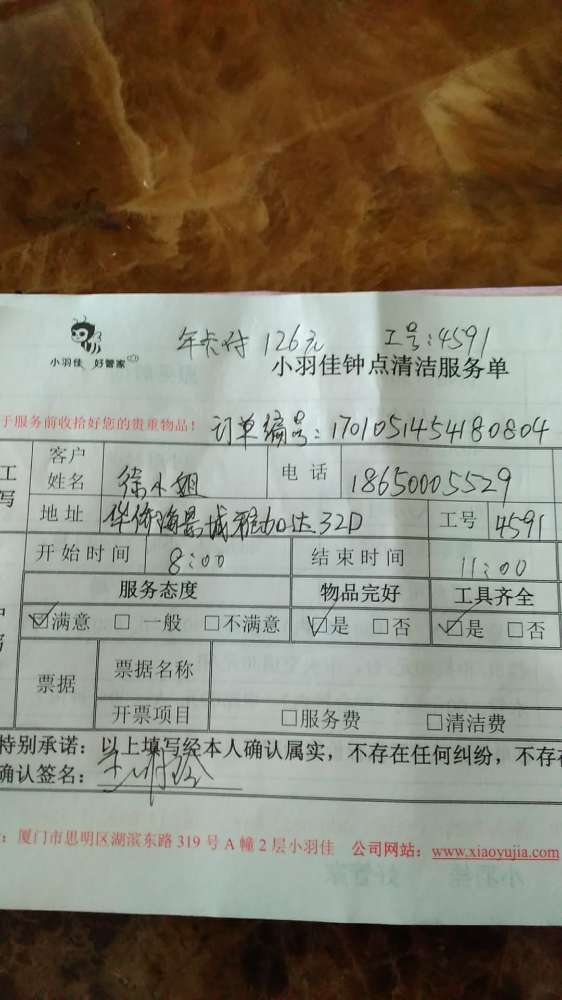 年卡付 126元 工号:4591
小羽佳 好管家 小羽佳钟点清洁服务单
于服务前收拾好您的贵重物品! 订单编号:1701051454180804
工 客户姓名 徐小姐 电话 18650005529
写 地址 华侨海景城雅加达32D 工号 4591
开始时间 8:00 结束时间 11:00
服务态度 物品完好 工具齐全
☑满意 □一般 □不满意 ☑是 □否 ☑是 □否
票据 票据名称
开票项目 □服务费 □清洁费
特别承诺:以上填写经本人确认属实,不存在任何纠纷,不存在
确认签名:
:厦门市思明区湖滨东路 319 号 A 幢 2 层小羽佳 公司网站:www.xiaoyujia.com